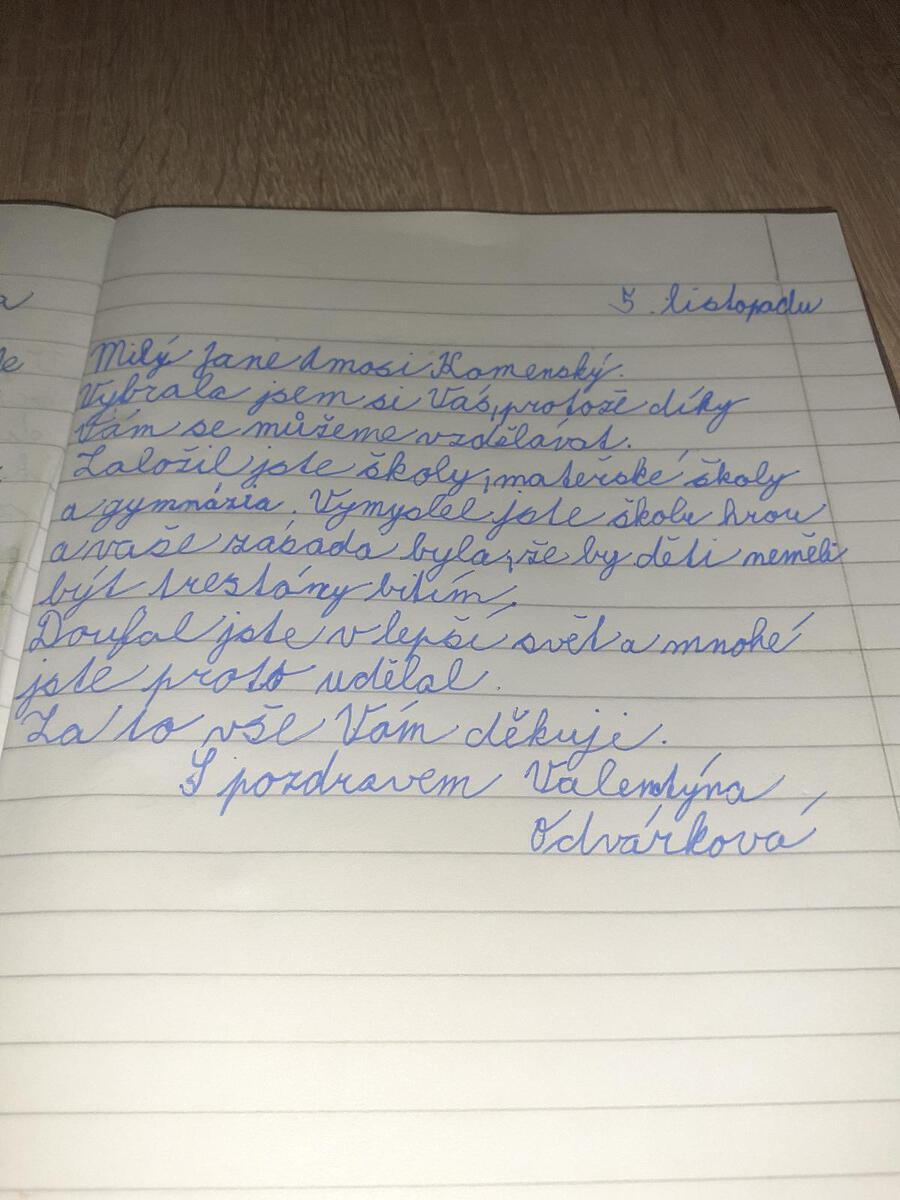 a
5. listopadu
le
Milý Jane Amosi Komenský.
Vybrala jsem si Vás, protože díky
Vám se můžeme vzdělávat.
Založil jste školy, mateřské školy
a gymnázia. Vymyslel jste školu hrou
a vaše zásada byla, že by děti neměli
být trestány bitím.
Doufal jste v lepší svět a mnohé
jste proto udělal.
Za to vše Vám děkuji.
S pozdravem Valentýna
Odvárková